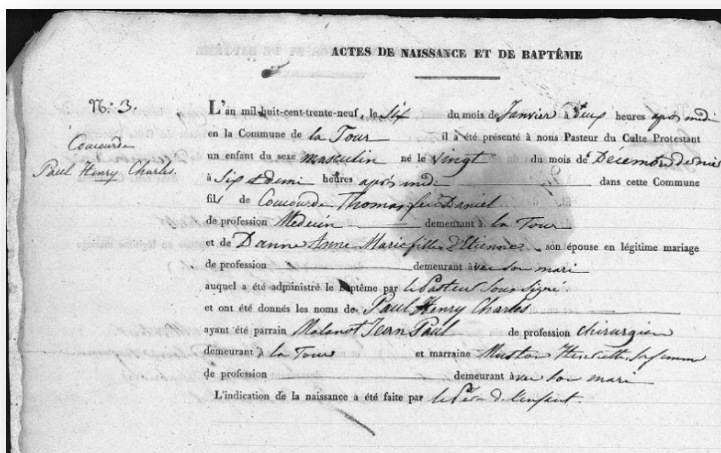 ACTES DE NAISSANCE ET DE BAPTÊME
N.º 3.
Coucourde
Paul Henry Charles.
L'an mil-huit-cent-trente-neuf, le Six du mois de Janvier à deux heures après midi
en la Commune de la Tour il a été présenté à nous Pasteur du Culte Protestant
un enfant du sexe masculin né le Vingt du mois de Décembre dernier
à Six & demi heures après midi dans cette Commune
fils de Coucourde Thomas feu Daniel
de profession Medecin demeurant à la Tour
et de Danne Anne Marie fille d'Etienne son épouse en légitime mariage
de profession demeurant avec son mari
auquel a été administré le Baptême par le Pasteur Sous-signé
et ont été donnés les noms de Paul Henry Charles
ayant été parrain Malanot Jean Paul de profession chirurgien
demeurant à la Tour et marraine Muston Henriette sa femme
de profession demeurant avec son mari
L'indication de la naissance a été faite par le Père de l'enfant.